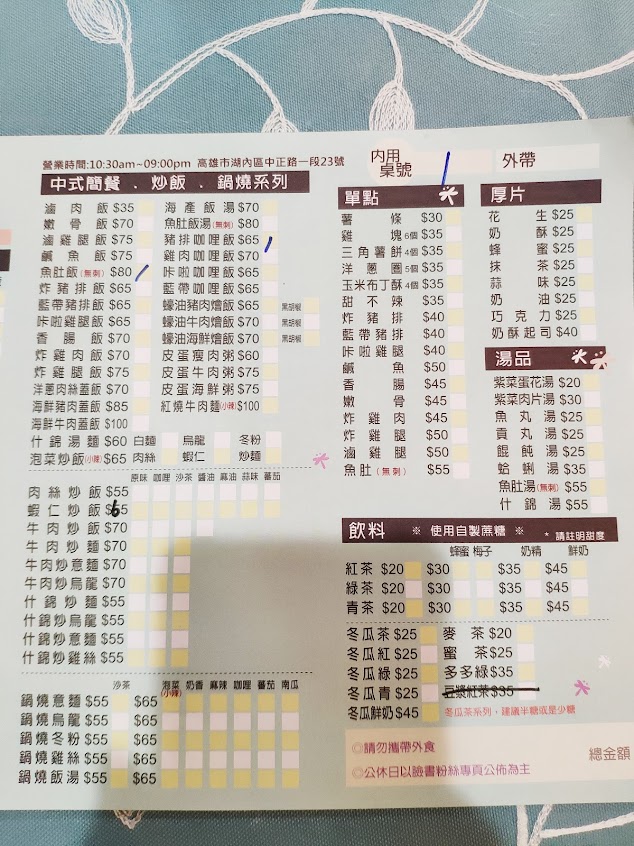 營業時間:10:30am~09:00pm 高雄市湖內區中正路一段23號
內用
桌號
外帶
中式簡餐 . 炒飯 . 鍋燒系列
滷肉飯 $35
嫩骨飯 $70
滷雞腿飯 $75
鹹魚飯 $75
魚肚飯(無刺) $80
炸豬排飯 $65
藍帶豬排飯 $65
咔啦雞腿飯 $65
香腸飯 $70
炸雞肉飯 $70
炸雞腿飯 $75
洋蔥肉絲蓋飯 $70
海鮮豬肉蓋飯 $85
海鮮牛肉蓋飯 $100
什錦湯麵 $60
泡菜炒飯(小辣) $65
海產飯湯 $70
魚肚飯湯(無刺) $80
豬排咖哩飯 $65
雞肉咖哩飯 $70
咔啦咖哩飯 $65
藍帶咖哩飯 $65
蠔油豬肉燴飯 $65 黑胡椒
蠔油牛肉燴飯 $70 黑胡椒
蠔油海鮮燴飯 $70 黑胡椒
皮蛋瘦肉粥 $60
皮蛋牛肉粥 $75
皮蛋海鮮粥 $75
紅燒牛肉麵(小辣) $100
白麵 烏龍 冬粉
肉絲 蝦仁 炒麵
原味 咖哩 沙茶 醬油 麻油 蒜味 番茄
肉絲炒飯 $55
蝦仁炒飯 $65
牛肉炒飯 $70
牛肉炒麵 $70
牛肉炒意麵 $70
牛肉炒烏龍 $70
什錦炒麵 $55
什錦炒烏龍 $55
什錦炒意麵 $55
什錦炒雞絲 $55
沙茶 泡菜(小辣) 奶香 麻辣 咖哩 番茄 南瓜
鍋燒意麵 $55 $65
鍋燒烏龍 $55 $65
鍋燒冬粉 $55 $65
鍋燒雞絲 $55 $65
鍋燒飯湯 $55 $65
單點
薯條 $30
雞塊6個 $35
三角薯餅4個 $35
洋蔥圈5個 $35
玉米布丁酥4個 $35
甜不辣 $35
炸豬排 $40
藍帶豬排 $40
咔啦雞腿 $40
鹹魚 $50
香腸 $45
嫩骨 $45
炸雞肉 $45
炸雞腿 $50
滷雞腿 $50
魚肚(無刺) $55
厚片
花生 $25
奶酥 $25
蜂蜜 $25
抹茶 $25
蒜味 $25
奶油 $25
巧克力 $25
奶酥起司 $40
湯品
紫菜蛋花湯 $20
紫菜肉片湯 $30
魚丸湯 $25
貢丸湯 $25
餛飩湯 $25
蛤蜊湯 $35
魚肚湯(無刺) $55
什錦湯 $55
飲料 ※ 使用自製蔗糖 ※ * 請註明甜度
蜂蜜 梅子 奶精 鮮奶
紅茶 $20 $30 $35 $45
綠茶 $20 $30 $35 $45
青茶 $20 $30 $35 $45
冬瓜茶 $25 麥茶 $20
冬瓜紅 $25 蜜茶 $25
冬瓜綠 $25 多多綠 $35
冬瓜青 $25 豆漿紅茶 $35
冬瓜鮮奶 $45 冬瓜茶系列,建議半糖或是少糖
◎請勿攜帶外食
◎公休日以臉書粉絲專頁公佈為主
總金額